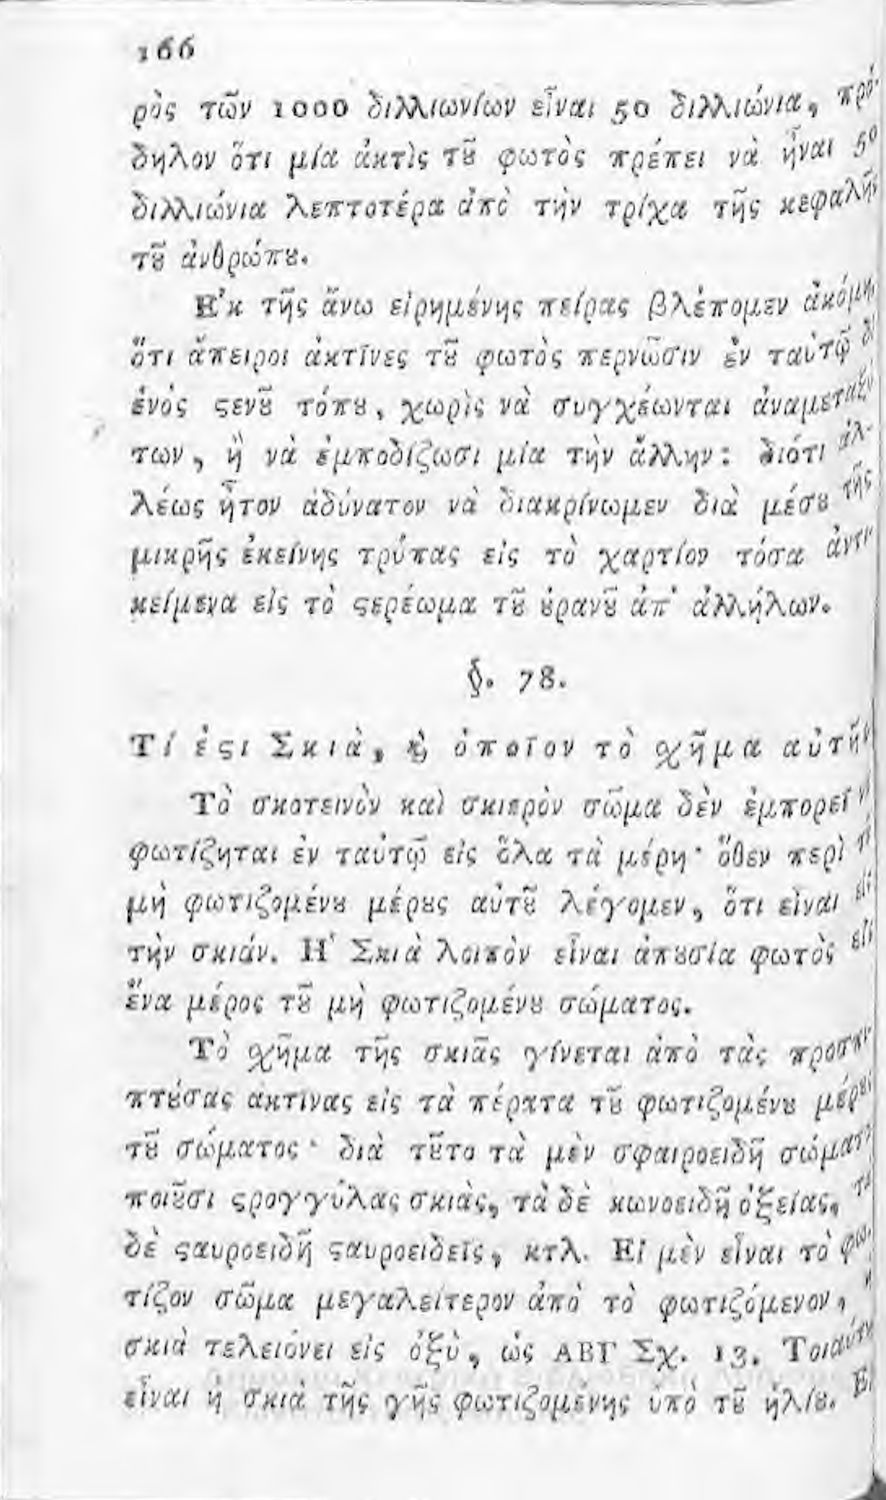 166
ρὸς τῶν 1000 διλλιωνίων εἶναι 50 διλλιώνια, πρό-
δηλον ὅτι μία ἀκτὶς τȣ͂ φωτὸς πρέπει νὰ ἦναι 50
διλλιώνια λεπτοτέρα ἀπὸ τὴν τρίχα τῆς κεφαλῆς
τȣ͂ ἀνθρώπȣ.
Ἐκ τῆς ἄνω εἰρημένης πείρας βλέπομεν ἀκόμη,
ὅτι ἄπειροι ἀκτῖνες τȣ͂ φωτὸς περνῶσιν ἐν ταὐτῷ
ἑνός ϛενȣ͂ τόπȣ, χωρὶς νὰ συγχέωνται ἀναμεταξύ
των, ἢ νὰ ἐμποδίζωσι μία τὴν ἄλλην: διότι ἀλ-
λέως ἦτον ἀδύνατον νὰ διακρίνωμεν διὰ μέσȣ τῆς
μικρῆς ἐκείνης τρύπας εἰς τὸ χαρτίον τόσα ἀντι-
κείμενα εἰς τὸ ϛερέωμα τȣ͂ ȣ̓ρανȣ͂ ἀπ' ἀλλήλων.
§. 78.
Τί ἐϛι Σκιὰ, ϗ ὁποῖον τὸ χῆμα αὐτῆς
Τὸ σκοτεινὸν καὶ σκιερὸν σῶμα δὲν ἐμπορεῖ νὰ
φωτίζηται ἐν ταὐτῷ εἰς ὅλα τὰ μέρη· ὅθεν περὶ τȣ͂
μὴ φωτιζομένȣ μέρȣς αὐτȣ͂ λέγομεν, ὅτι εἶναι εἰς
τὴν σκιάν. Ἡ Σκιὰ λοιπὸν εἶναι ἀπȣσία φωτὸς εἰς
ἕνα μέρος τȣ͂ μὴ φωτιζομένȣ σώματος.
Τὸ χῆμα τῆς σκιᾶς γίνεται ἀπὸ τὰς προσπι-
πτȣ́σας ἀκτῖνας εἰς τὰ πέρατα τȣ͂ φωτιζομένȣ μέρȣς
τȣ͂ σώματος· διὰ τȣ͂το τὰ μὲν σφαιροειδῆ σώματα
ποιȣ͂σι ϛρογγύλας σκιὰς, τὰ δὲ κωνοειδῆ ὀξείας, τὰ
δὲ ϛαυροειδῆ ϛαυροειδεῖς, κτλ. Εἰ μὲν εἶναι τὸ φω-
τίζον σῶμα μεγαλείτερον ἀπὸ τὸ φωτιζόμενον, ἡ
σκιὰ τελειόνει εἰς ὀξὺ, ὡς ΑΒΓ Σχ. 13. Τοιαύτη
εἶναι ἡ σκιὰ τῆς γῆς φωτιζομένης ὑπὸ τȣ͂ ἡλίȣ. Εἰ